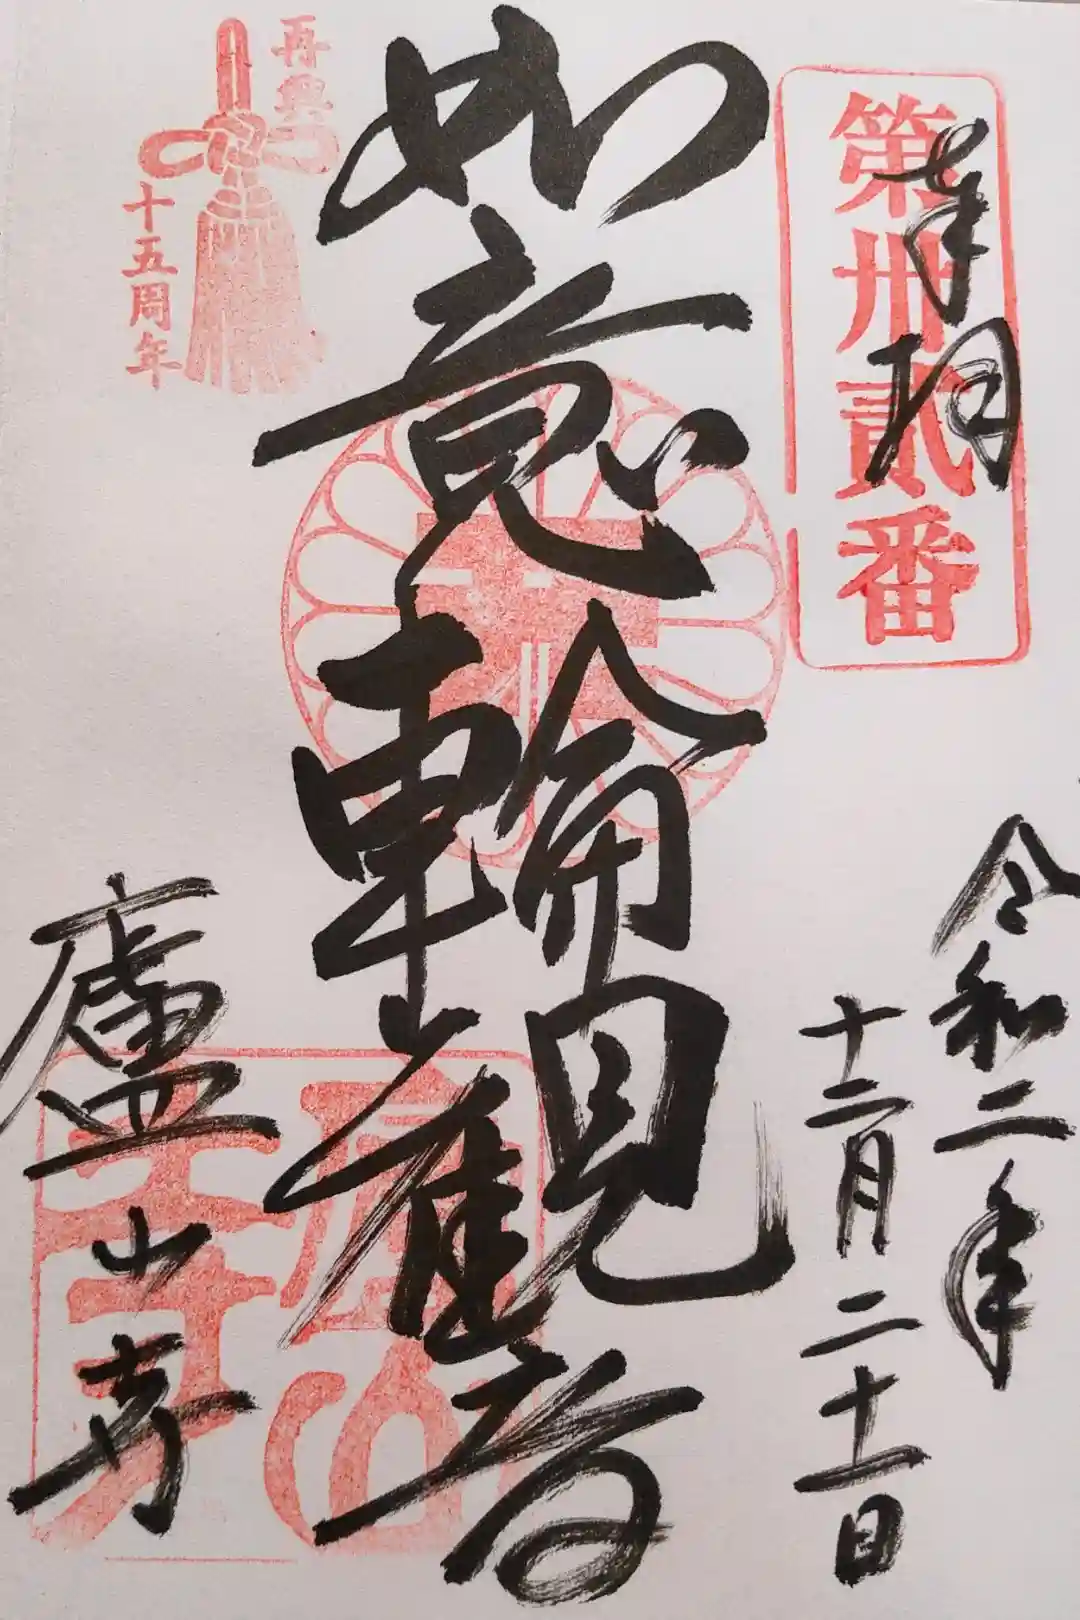 奉拝
第卅貳番
令和二年
十二月二十一日
如意輪観音
再興
十五周年
廬山寺